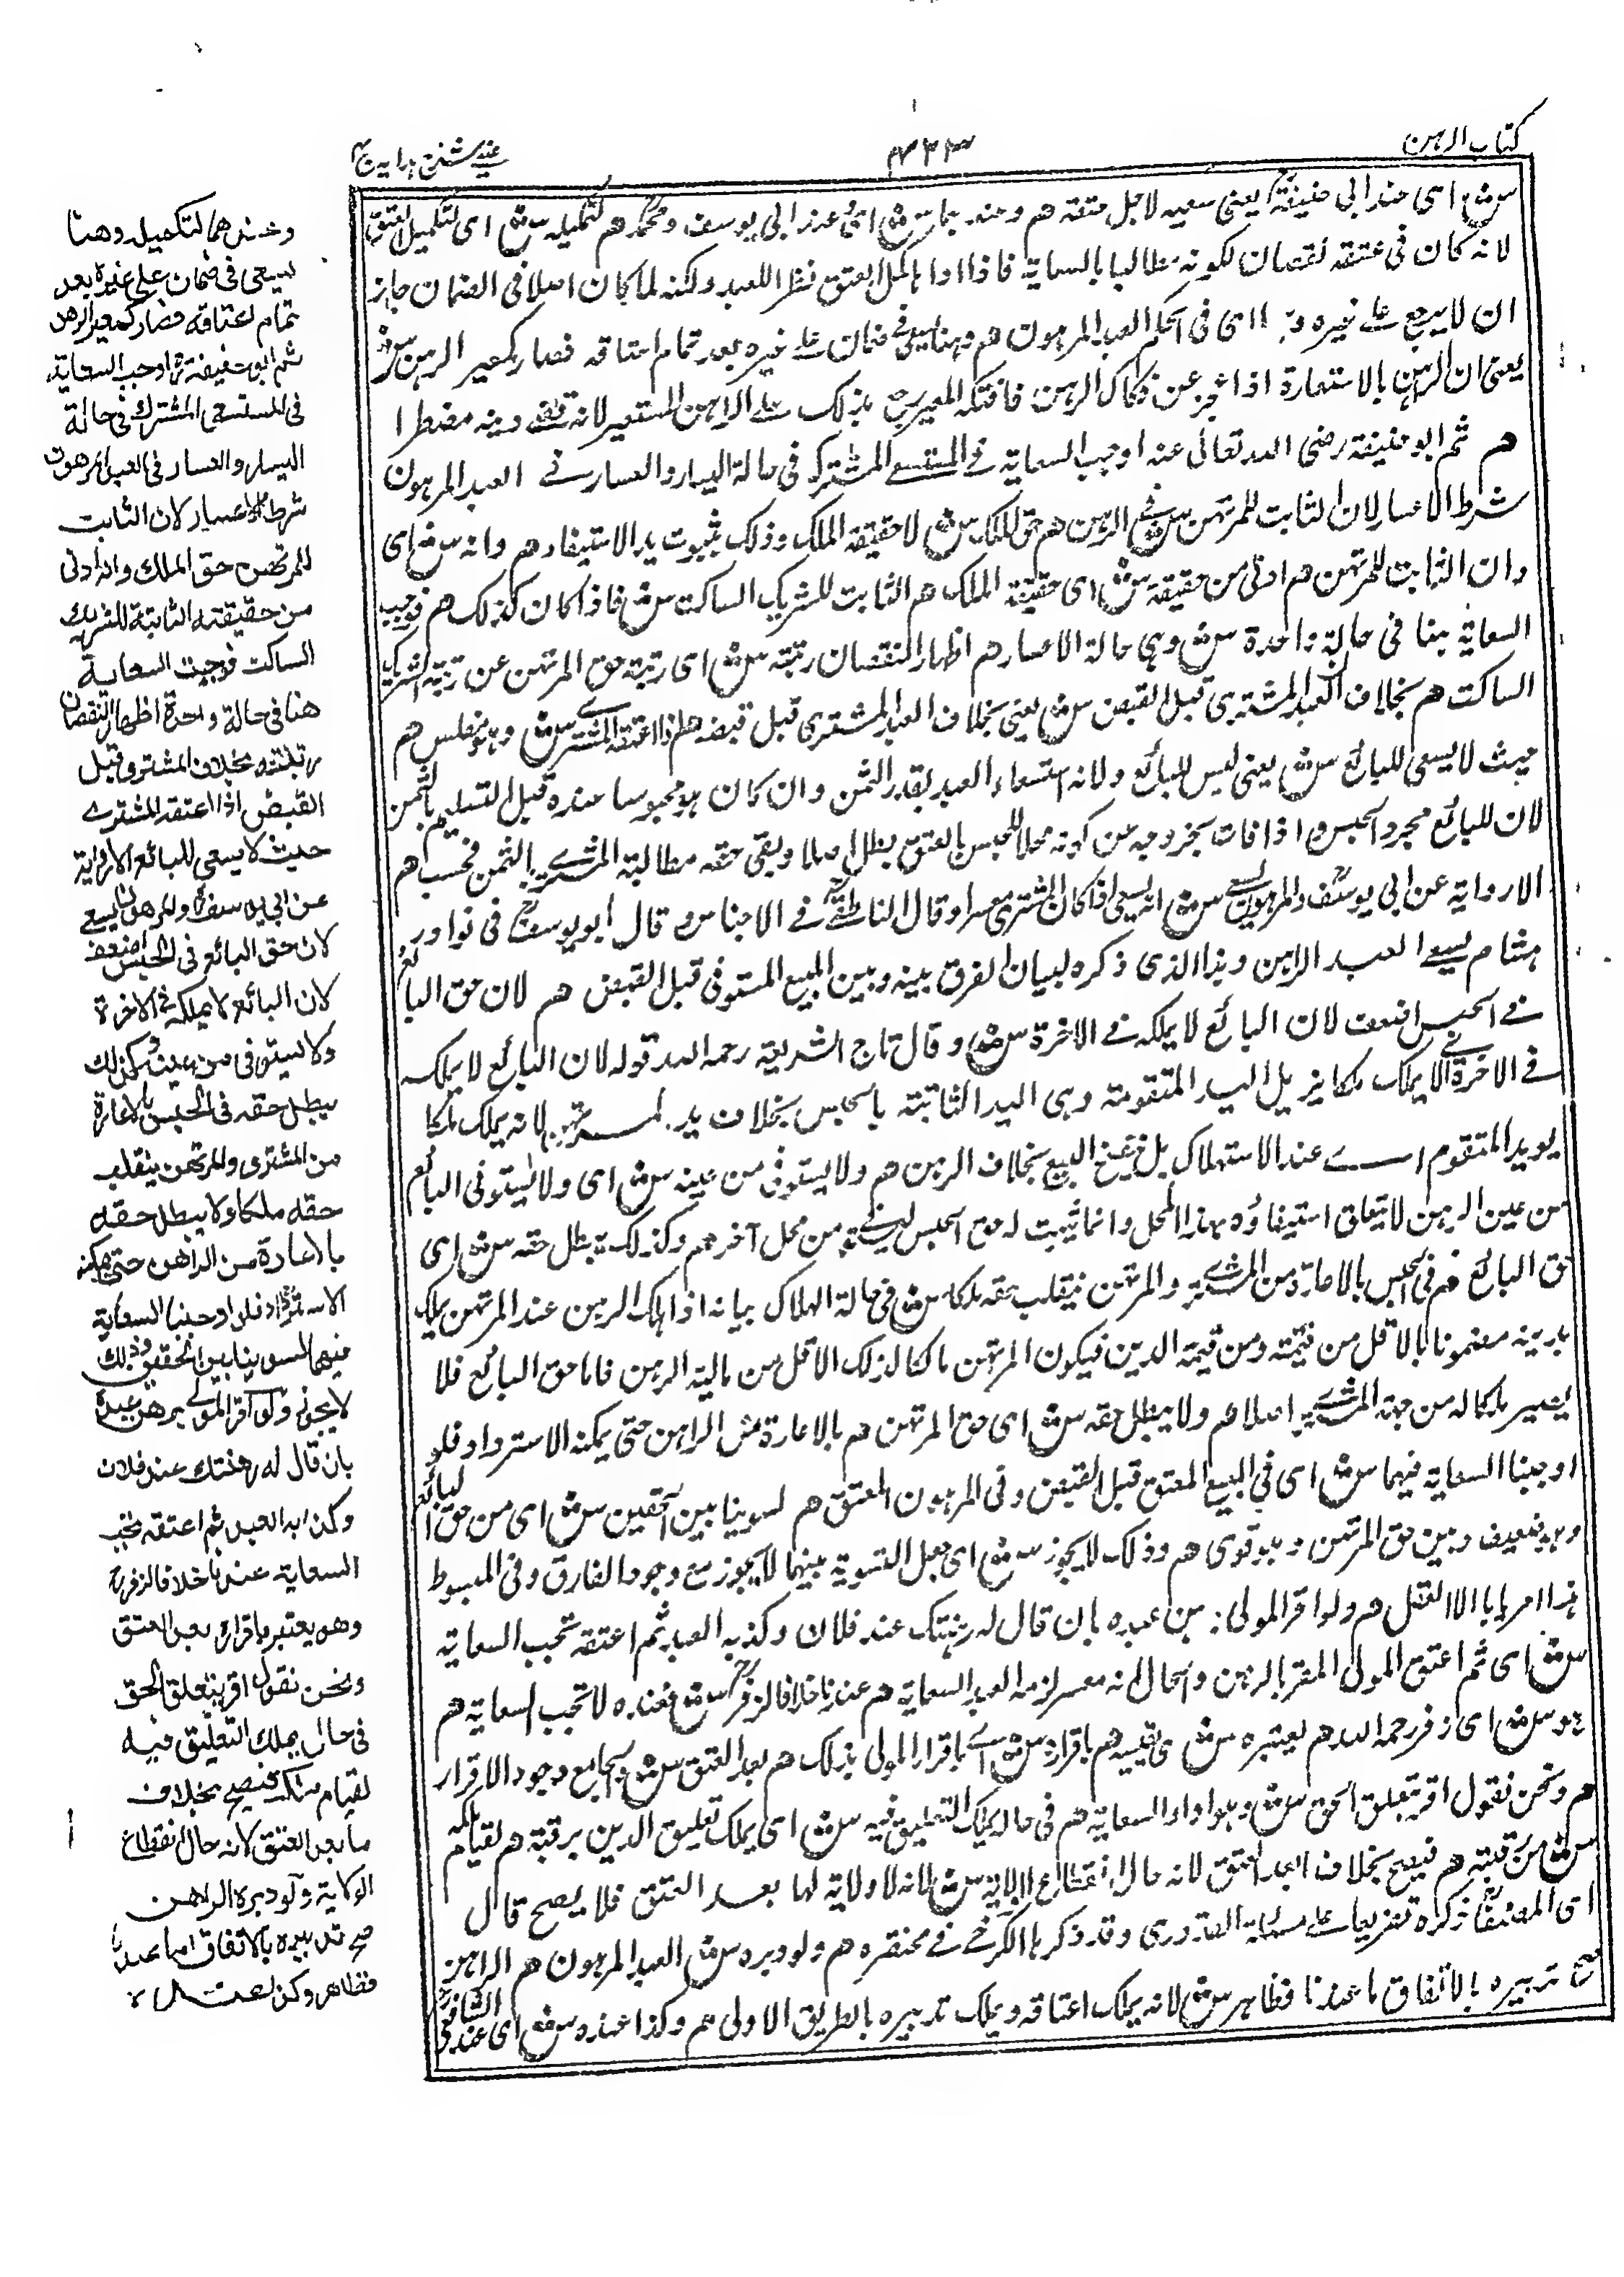 كتاب الرهن
٤٣٣
عيني شرح هداية ج٤
ش اى عند ابى حنيفة يعنى سعيه لاجل عتقه هم وعندهما ش اى وعند ابى يوسف ومحمد هم لتكميله ش اى لتكميل العتق
لانه كان فى عتقه نقصان لكونه مطالبا بالسعاية فاذا اداها كمل العتق نظرا للعبد ولكنه لما كان اصلا فى الضمان جاز
ان لا يرجع على غيره اى فى الحكم العبد المرهون هم وهنا يسعى فى ضمان على غيره بعد تمام اعتاقه فصار كمعير الرهن ش
يعنى ان الرهن بالاستعارة اذا عجز عن فكاك الرهن فافتكه المعير رجع بذلك على الراهن المستعير لانه قضى دينه مضطرا
هم ثم ابو حنيفة رضى الله تعالى عنه اوجب السعاية فى المستسعى المشترك فى حالة اليسار والعسار فى العبد المرهون
شرط الاعسار لان الثابت للمرتهن ش فى الرهن هم حق الملك ش لا حقيقة الملك وذلك بثبوت يد الاستيفاء هم وانه ش اى
وان الثابت للمرتهن هم ادنى من حقيقته ش اى حقيقة الملك هم الثابت للشريك الساكت ش فاذا كان كذلك هم فوجب
السعاية هنا فى حالة واحدة ش وهى حالة الاعسار هم اظهارا لنقصان رتبته ش اى رتبة حق المرتهن عن رتبة الشريك
الساكت هم بخلاف العبد المشترى قبل القبض ش يعنى بخلاف العبد المشترى قبل قبضه هم اذا اعتقه المشترى ش وهو مفلس هم
حيث لا يسعى للبائع ش يعنى ليس للبائع ولاية استسعاء العبد بقدر الثمن وان كان هو محبوسا عنده قبل التسليم بالثمن
لان للبائع مجرد الحبس واذا فات بخروجه من كونه محلا للحبس بالعتق بطل اصلا وبقى حقه مطالبة المشترى بالثمن فحسب هم
الا رواية عن ابى يوسف والمرهون يسعى ش انه يسعى اذا كان المشترى معسرا وقال الناطفى فى الاجناس قال ابو يوسف فى نوادر
هشام يسعى العبد الراهن وهذا الذى ذكره لبيان الفرق بينه وبين المبيع المستوفى قبل القبض هم لان حق البائع
فى الحبس اضعف لان البائع لا يملكه فى الاخرة ش وقال تاج الشريعة رحمه الله قوله لان البائع لا يملك
فى الاخرة اى لا يملك ملكا يزيل اليد المتقومة وهى اليد الثابتة بالحبس بخلاف يد المرتهن لانه يملك ملكا
يويد المتقوم اى عند الاستهلاك بل يفسخ البيع بخلاف الرهن هم ولا يستوفى من عينه ش اى ولا يستوفى البائع
من عين الرهن لا يتعلق استيفاؤه بهذا المحل وانما يثبت له حق الحبس من محل آخر هم وكذلك يبطل حقه ش اى
حق البائع هم فى الحبس بالاعارة من المشترى والمرتهن ينقلب حقه ملكا ش فى حالة الهلاك بيانه اذا هلك الرهن عند المرتهن يملك
بدينه مضمونا بالاقل من قيمته ومن قيمة الدين فيكون المرتهن مالكا لذلك الاقل من مالية الرهن فاما حق البائع فلا
يصير ملكا له من جهة المشترى اصلا هم ولا يبطل حقه ش اى حق المرتهن هم بالاعارة من الراهن حتى يمكنه الاسترداد فلو
اوجبنا السعاية فيهما ش اى فى المبيع المعتق قبل القبض وفى المرهون المعتق هم لسوينا بين الحقين ش اى من حق البائع
وهو ضعيف وبين حق المرتهن وهو قوى هم وذلك لا يجوز ش اى جعل التسوية بينهما لا يجوز مع وجود الفارق وفى المبسوط
هذا امر يا باه العقل هم ولو اقر المولى برهن عبده بان قال له رهنتك عند فلان وكذبه العبد ثم اعتقه تجب السعاية
ش اى ثم اعتق المولى المقر بالرهن والحال انه معسر لزمه العبد السعاية هم عندنا خلافا لزفر ش فعنده لا تجب السعاية هم
هو ش اى زفر رحمه الله هم يعتبره ش اى يقيسه هم باقراره ش اى باقرار المولى بذلك هم بعد العتق ش والجامع وجود الاقرار
هم ونحن نقول اقر بتعلق الحق ش وهو اداء السعاية هم فى حال يملك التعليق فيه ش اى يملك تعليق الدين برقبته هم لقيام ملكه
ش من رقبته هم فيصح بخلاف ما بعد العتق لانه حال انقطاع الولاية ش لانه لا ولاية لها بعد العتق فلا يصح قال
اى المصنف ذكره تفريعا على مسألة القدورى وقد ذكرها الكرخى فى مختصره هم ولو دبره ش العبد المرهون هم الراهن
صح تدبيره بالاتفاق اما عندنا فظاهر ش لانه يملك اعتاقه ويملك تدبيره بالطريق الاولى هم وكذا عنده ش اى عند الشافعى
وعندهما لتكميله وهنا
يسعى فى ضمان على غيره بعد
تمام اعتاقه فصار كمعير الرهن
ثم ابو حنيفة اوجب السعاية
فى المستسعى المشترك فى حالة
اليسار والعسار وفى العبد المرهون
شرط الاعسار لان الثابت
للمرتهن حق الملك وانه ادنى
من حقيقته الثابتة للشريك
الساكت فوجبت السعاية
هنا فى حالة واحدة اظهارا لنقصان
رتبته بخلاف المشترى قبل
القبض اذا اعتقه المشترى
حيث لا يسعى للبائع الا رواية
عن ابى يوسف والمرهون يسعى
لان حق البائع فى الحبس اضعف
لان البائع لا يملكه فى الاخرة
ولا يستوفى من عينه وكذلك
يبطل حقه فى الحبس بالاعارة
من المشترى والمرتهن ينقلب
حقه ملكا ولا يبطل حقه
بالاعارة من الراهن حتى يمكنه
الاسترداد فلو اوجبنا السعاية
فيهما لسوينا بين الحقين وذلك
لا يجوز ولو اقر المولى برهن عبده
بان قال له رهنتك عند فلان
وكذبه العبد ثم اعتقه تجب
السعاية عندنا خلافا لزفر
وهو يعتبره باقراره بعد العتق
ونحن نقول اقر بتعلق الحق
فى حال يملك التعليق فيه
لقيام ملكه فيصح بخلاف
ما بعد العتق لانه حال انقطاع
الولاية ولو دبره الراهن
صح تدبيره بالاتفاق اما عندنا
فظاهر وكذا عنده